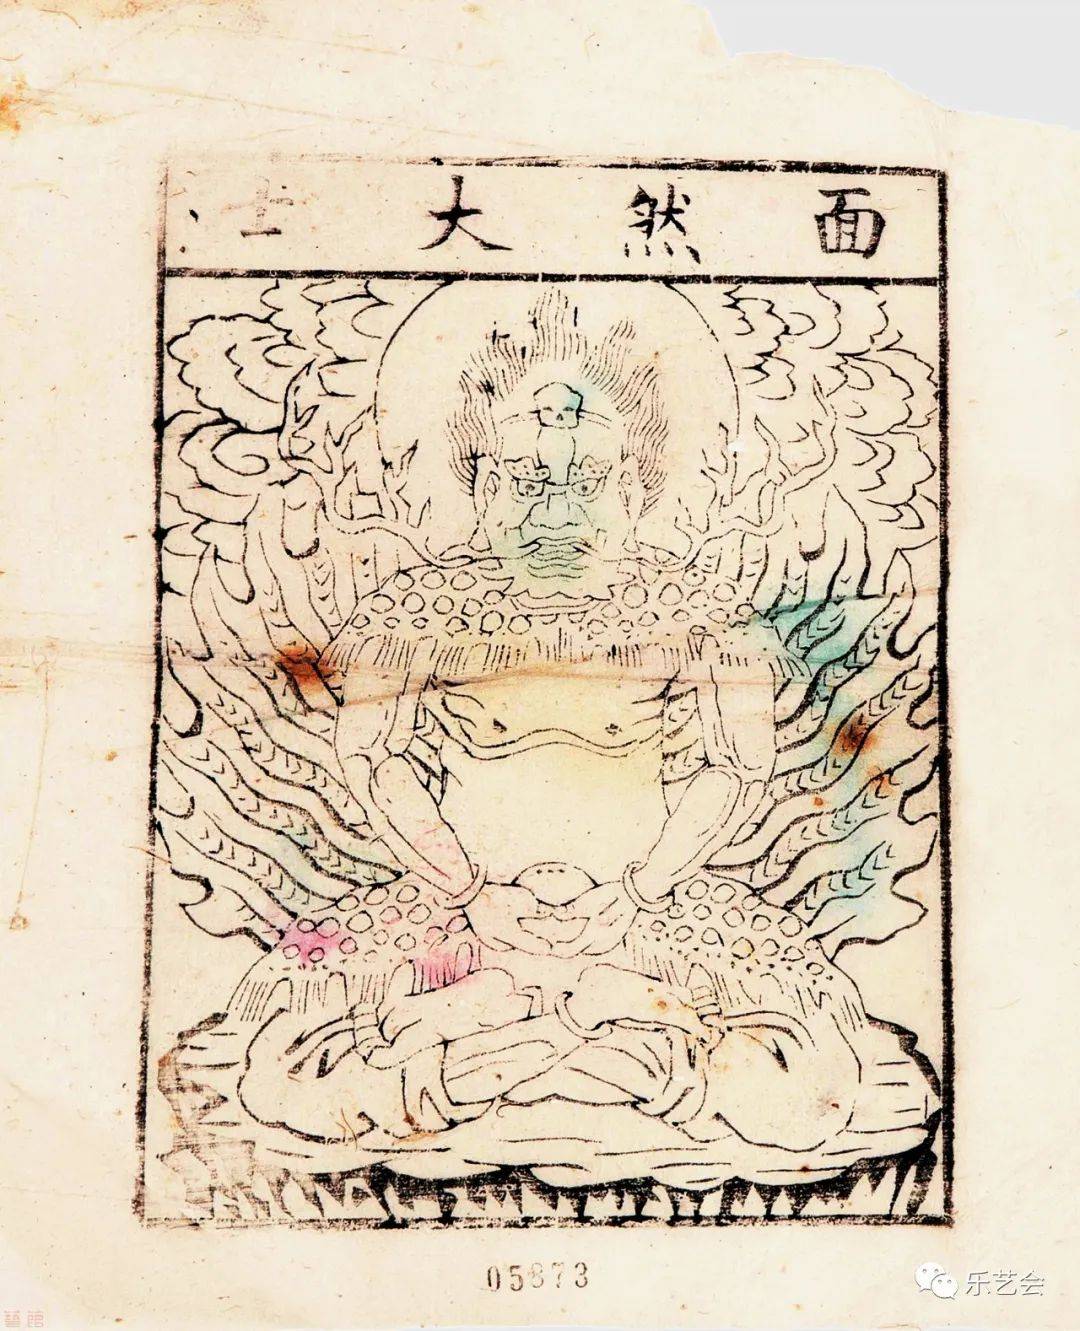 面然大士
05873
乐艺会